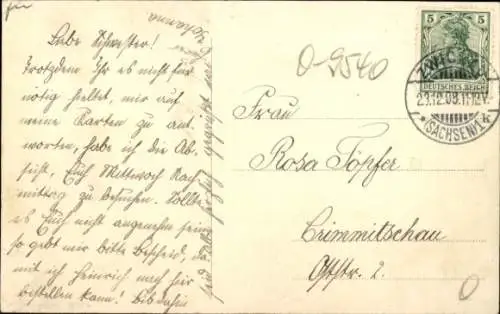 Liebe Schwester!
Trotzdem Ihr es nicht für
nötig hieltet, mir auf
meine Karten zu ant-
worten, habe ich die Ab-
sicht, Euch Mittwoch Nach-
mittag zu besuchen. Sollte
es Euch nicht angenehm sein,
so gebt mir bitte Bescheid, da-
mit ich Heinrich nach hier
bestellen kann! Bis dahin
seid alle herzlich gegrüßt von
Eurer
Johanna
O-9540
5 5
DEUTSCHES REICH
ZWICKAU
23.12.08.11-12V.
*(SACHSEN)1 k
Frau
Rosa Töpfer
Crimmitschau
Oststr. 2.